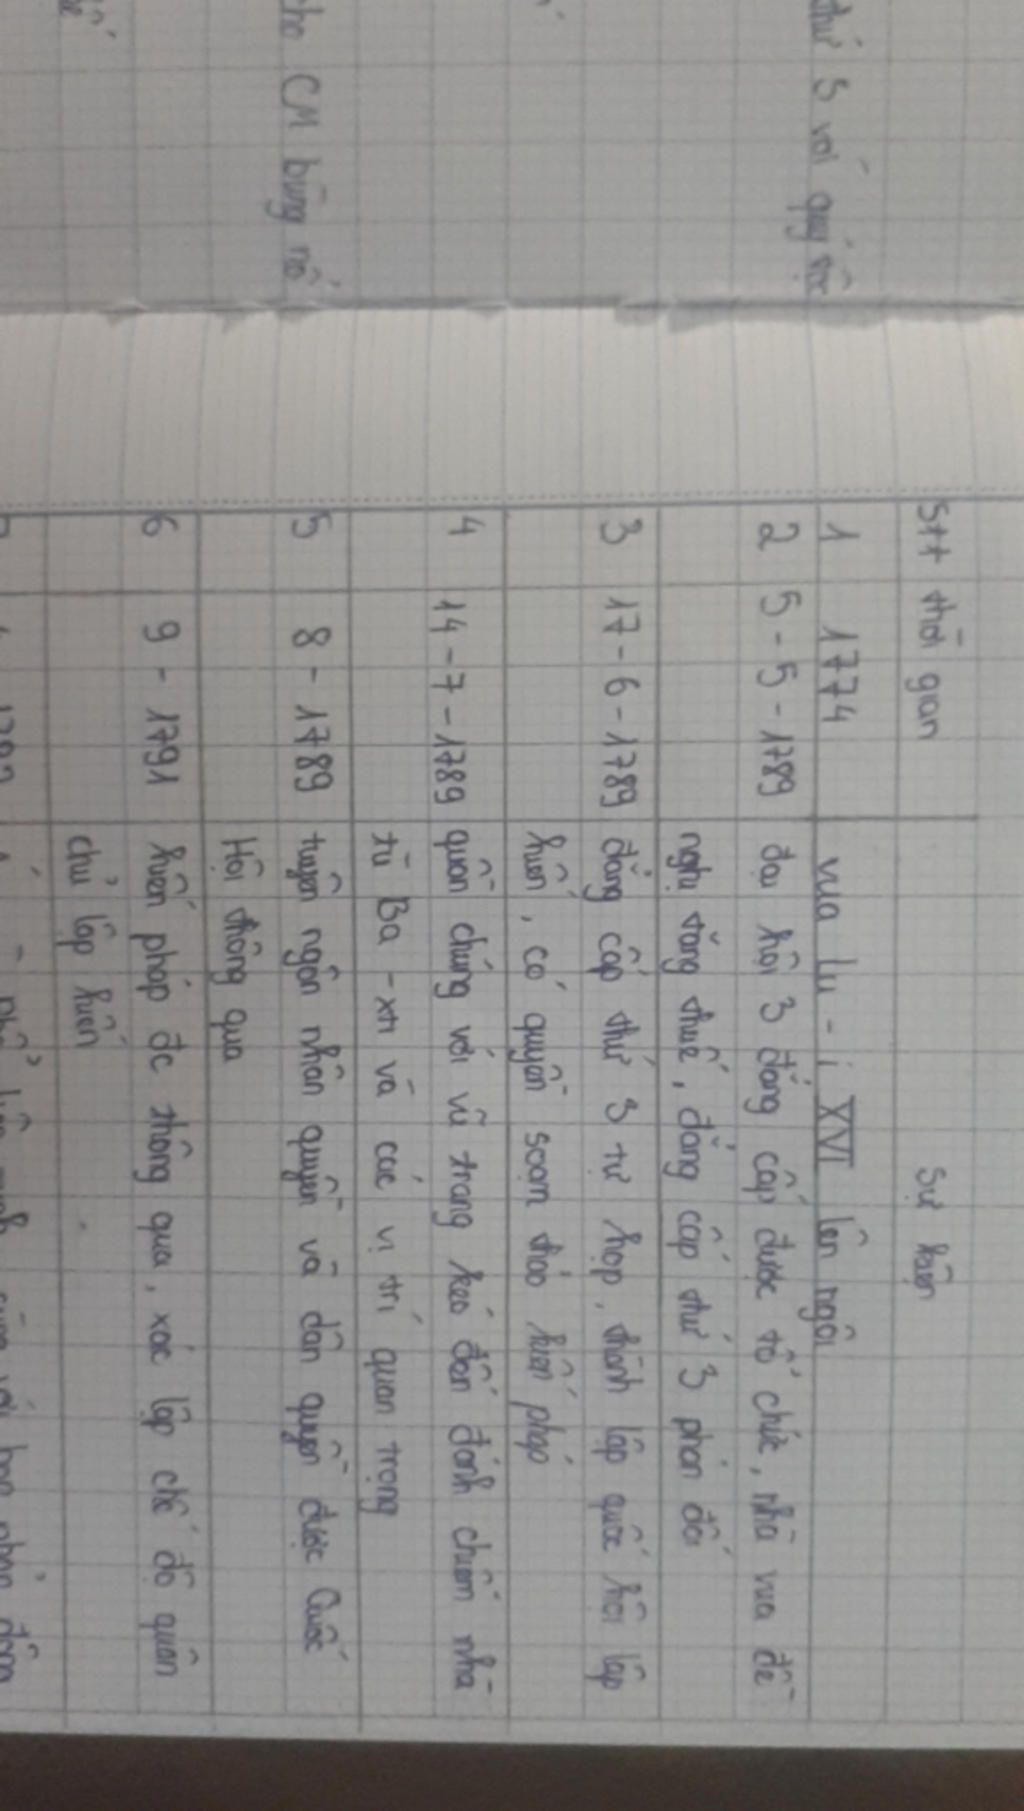 thứ 3 với quý tộc
cho CM bùng nổ
stt thời gian sự kiện
1 1774 vua Lu-i XVI lên ngôi
2 5-5-1789 đại hội 3 đẳng cấp được tổ chức, nhà vua đề
nghị tăng thuế, đẳng cấp thứ 3 phản đối
3 17-6-1789 đẳng cấp thứ 3 tự họp, thành lập quốc hội lập
hiến, có quyền soạn thảo hiến pháp
4 14-7-1789 quần chúng với vũ trang kéo đến đánh chiếm nhà
tù Ba-xti và các vị trí quan trọng
5 8-1789 tuyên ngôn nhân quyền và dân quyền được Quốc
Hội thông qua
6 9-1791 hiến pháp đc thông qua, xác lập chế độ quân
chủ lập hiến